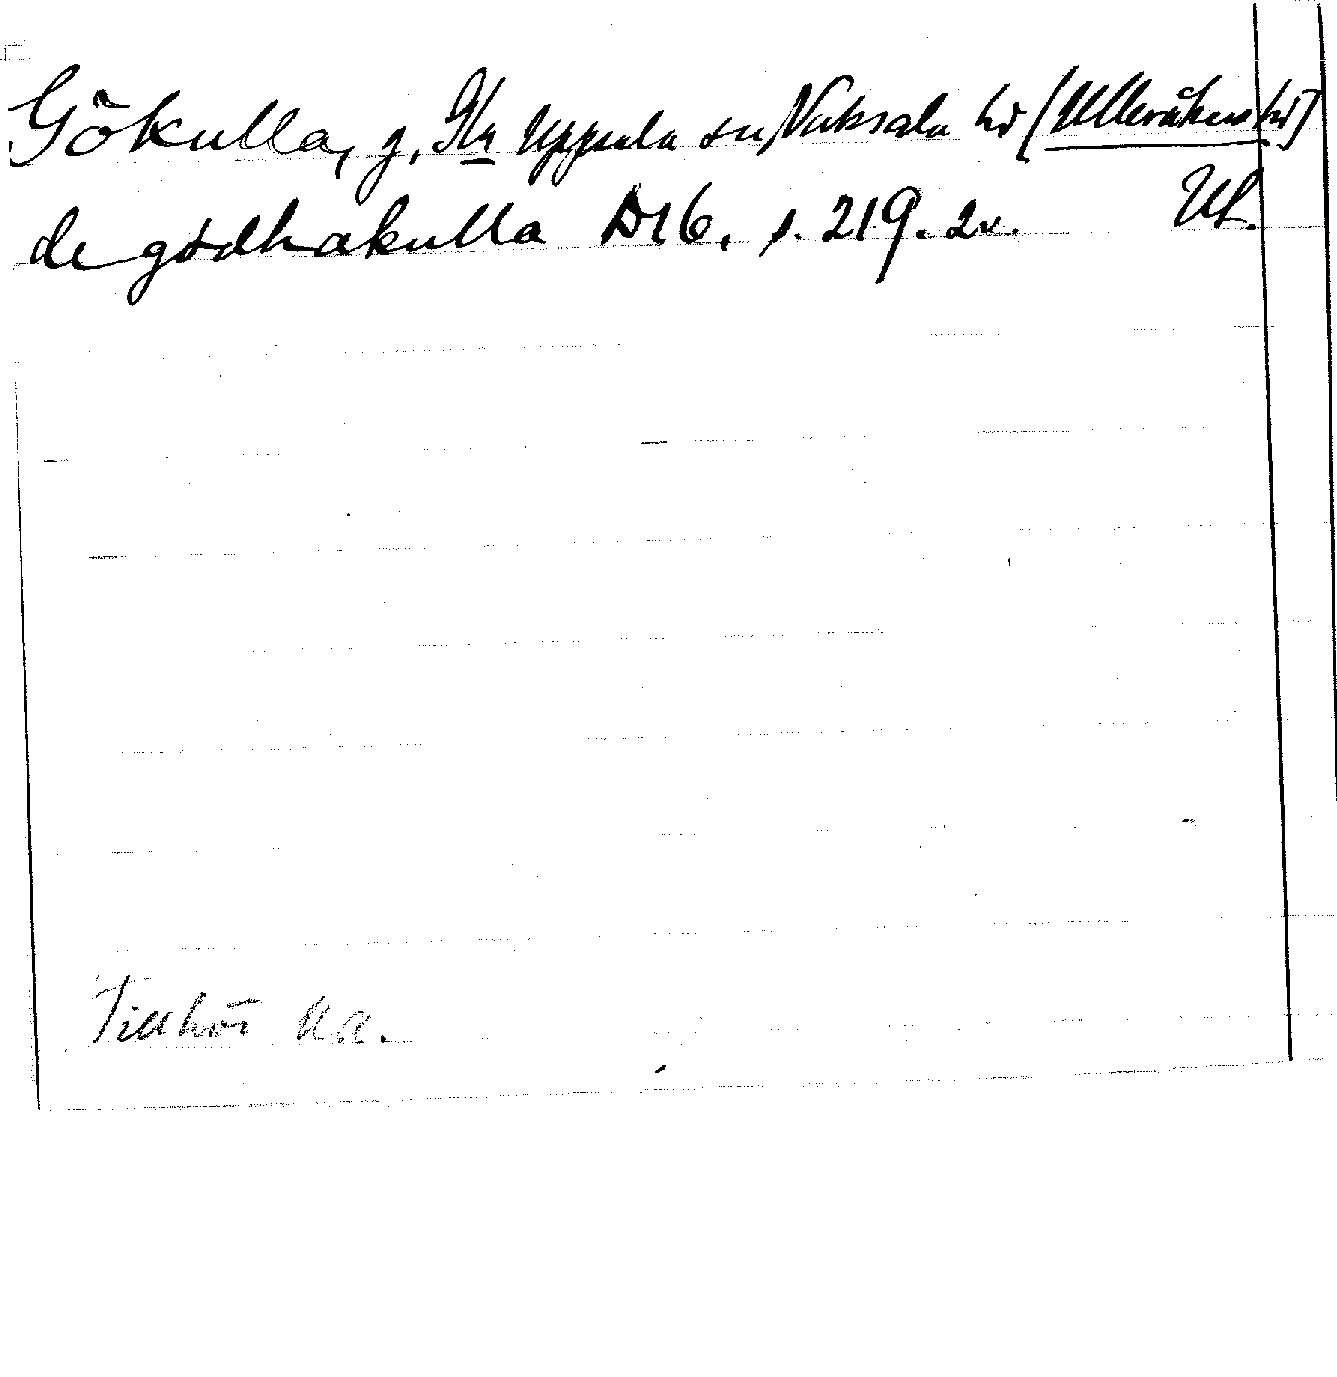 Gökulla, g, Gla Uppsala sn, Vaksala hd (Ulleråkers hd)
de gödhakulla D16. s. 219. 2v. Upl.
Tillhör UA.